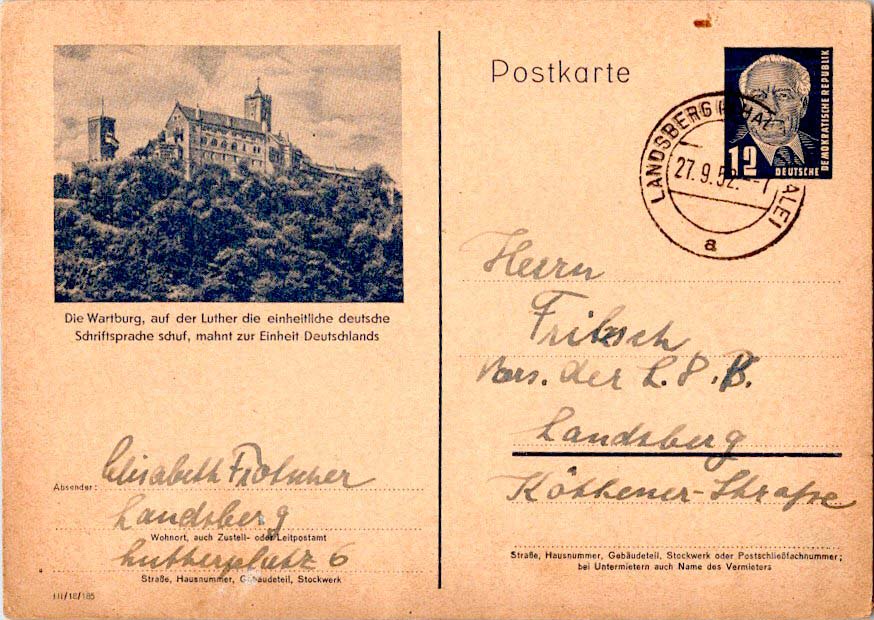 Postkarte
DEMOKRATISCHE REPUBLIK
12 DEUTSCHE
LANDSBERG
27.9.52.
a
Die Wartburg, auf der Luther die einheitliche deutsche
Schriftsprache schuf, mahnt zur Einheit Deutschlands
Herrn
Vors. der L.P.B.
Landsberg
Köthener-Straße
Straße, Hausnummer, Gebäudeteil, Stockwerk oder Postschließfachnummer;
bei Untermietern auch Name des Vermieters
Absender: Elisabeth
Landsberg
Wohnort, auch Zustell- oder Leitpostamt
Lutherplatz 6
Straße, Hausnummer, Gebäudeteil, Stockwerk
III/18/185